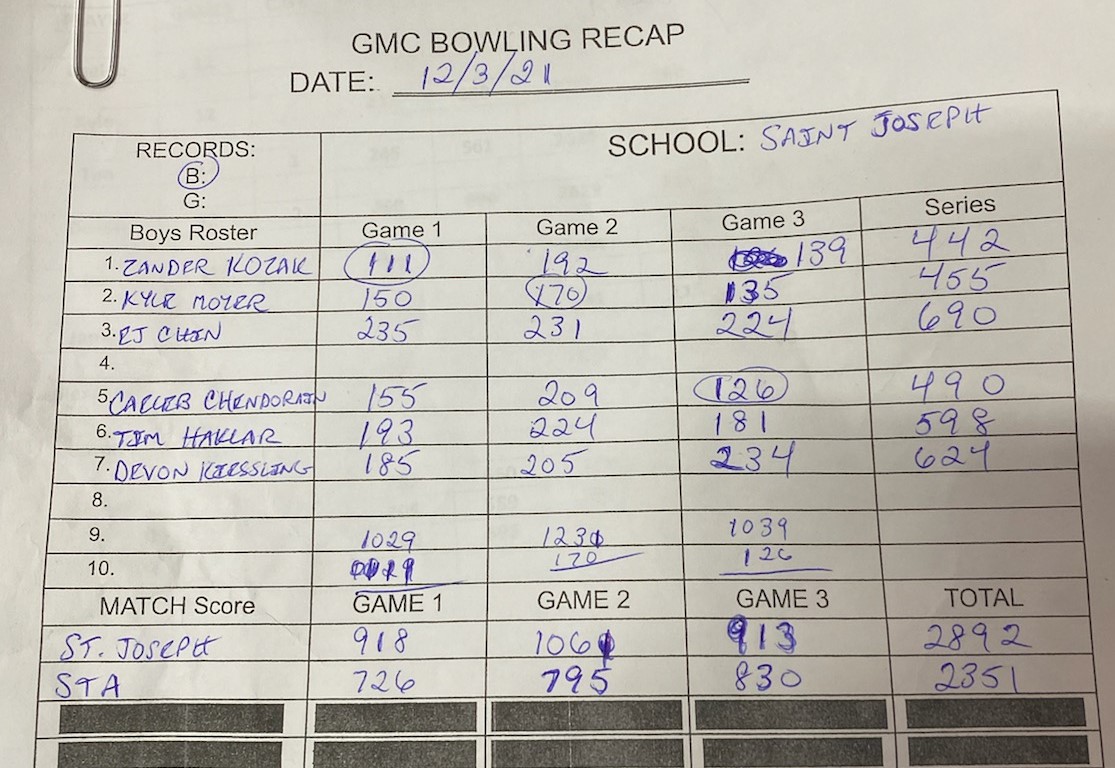 GMC BOWLING RECAP
DATE: 12/3/21
RECORDS: SCHOOL: SAINT JOSEPH
B:
G:
Boys Roster Game 1 Game 2 Game 3 Series
1. ZANDER KOZAK 111 192 139 442
2. KYLE MOYER 150 170 135 455
3. EJ CHIN 235 231 224 690
4.
5. CALEB CHENDORAIN 155 209 126 490
6. TIM HAKLAR 193 224 181 598
7. DEVON KIESSLING 185 205 234 624
8.
9. 1029 1231 1039
10. 170 126
MATCH Score GAME 1 GAME 2 GAME 3 TOTAL
ST. JOSEPH 918 1061 913 2892
STA 726 795 830 2351